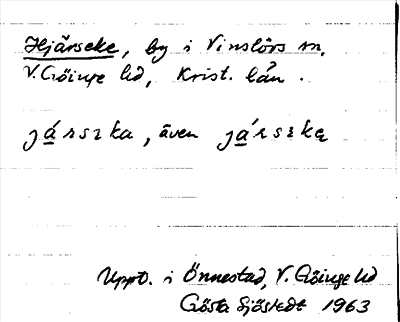 Hjärseke, by i Vinslövs sn,
V. Göinge hd, Krist. län.
járszka, även járszkę
Uppt. i Önnestad, V. Göinge hd
Gösta Sjöstedt 1963